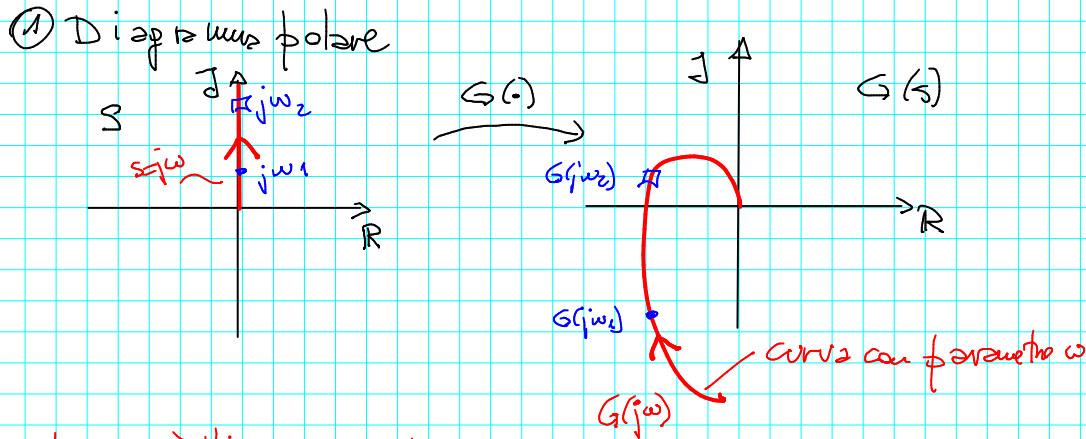 ① Diagramma polare
S
J
jω2
jω1
s=jω
R
G(·)
J
G(s)
G(jω2)
R
G(jω1)
curva con parametro ω
G(jω)